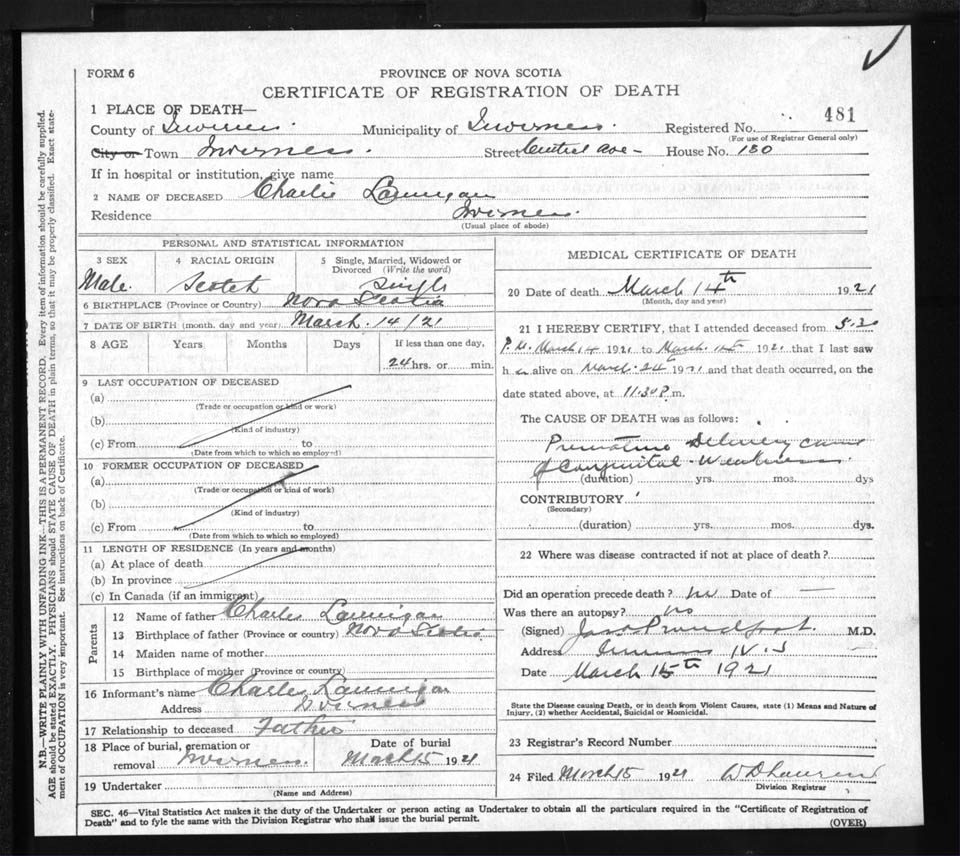 FORM 6
PROVINCE OF NOVA SCOTIA
CERTIFICATE OF REGISTRATION OF DEATH
481
1 PLACE OF DEATH—
County of Inverness. Municipality of Inverness. Registered No.
(For use of Registrar General only)
City or Town Inverness. Street Central Ave- House No. 130
If in hospital or institution, give name
2 NAME OF DECEASED Charlie Lannigan
Residence Inverness.
(Usual place of abode)
PERSONAL AND STATISTICAL INFORMATION
3 SEX
4 RACIAL ORIGIN
5 Single, Married, Widowed or Divorced (Write the word)
Male. Scotch Single
6 BIRTHPLACE (Province or Country) Nova Scotia
7 DATE OF BIRTH (month, day and year) March 14/21
8 AGE Years Months Days If less than one day,
24 hrs. or min.
9 LAST OCCUPATION OF DECEASED
(a)
(Trade or occupation or kind or work)
(b)
(Kind of industry)
(c) From to
(Date from which to which so employed)
10 FORMER OCCUPATION OF DECEASED
(a)
(Trade or occupation or kind of work)
(b)
(Kind of industry)
(c) From to
(Date from which to which so employed)
11 LENGTH OF RESIDENCE (In years and months)
(a) At place of death
(b) In province
(c) In Canada (if an immigrant)
Parents
12 Name of father Charles Lannigan
13 Birthplace of father (Province or country) Nova Scotia
14 Maiden name of mother
15 Birthplace of mother (Province or country)
16 Informant's name Charles Lannigan
Address Inverness
17 Relationship to deceased Father
18 Place of burial, cremation or removal Inverness. Date of burial March 15 1921
19 Undertaker
(Name and Address)
MEDICAL CERTIFICATE OF DEATH
20 Date of death March 14th 1921
(Month, day and year)
21 I HEREBY CERTIFY, that I attended deceased from 5.30
P.M. March 14 1921 to March 1921 that I last saw
h alive on March 1921 and that death occurred, on the
date stated above, at 11.30 P. m.
The CAUSE OF DEATH was as follows:
Premature Delivery
Congenital Weakness.
(duration) yrs. mos. dys
CONTRIBUTORY
(Secondary)
(duration) yrs. mos. dys.
22 Where was disease contracted if not at place of death?
Did an operation precede death? no Date of —
Was there an autopsy? no
(Signed) Jas Proudfoot. M.D.
Address Inverness N.S
Date March 15th 1921
State the Disease causing Death, or in death from Violent Causes, state (1) Means and Nature of
Injury, (2) whether Accidental, Suicidal or Homicidal.
23 Registrar's Record Number
24 Filed March 15 1921
Division Registrar
SEC. 46—Vital Statistics Act makes it the duty of the Undertaker or person acting as Undertaker to obtain all the particulars required in the "Certificate of Registration of
Death" and to fyle the same with the Division Registrar who shall issue the burial permit.
(OVER)
N.B.—WRITE PLAINLY WITH UNFADING INK—THIS IS A PERMANENT RECORD. Every item of information should be carefully supplied.
AGE should be stated EXACTLY. PHYSICIANS should STATE CAUSE OF DEATH in plain terms, so that it may be properly classified. Exact state-
ment of OCCUPATION is very important. See instructions on back of Certificate.